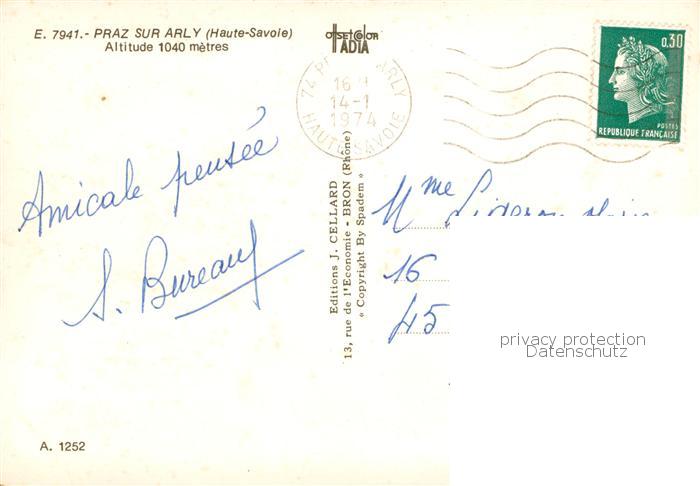 E. 7941.- PRAZ SUR ARLY (Haute-Savoie)
Altitude 1040 mètres
OffSETCOlOR
IADIA
16 H
14-1
1974
HAUTE-SAVOIE
0,30
POSTES
REPUBLIQUE FRANÇAISE
Amicale pensée
S. Bureau
Editions J. CELLARD
13, rue de l'Economie - BRON (Rhône)
« Copyright By Spadem »
Mme
16
45
privacy protection
Datenschutz
A. 1252